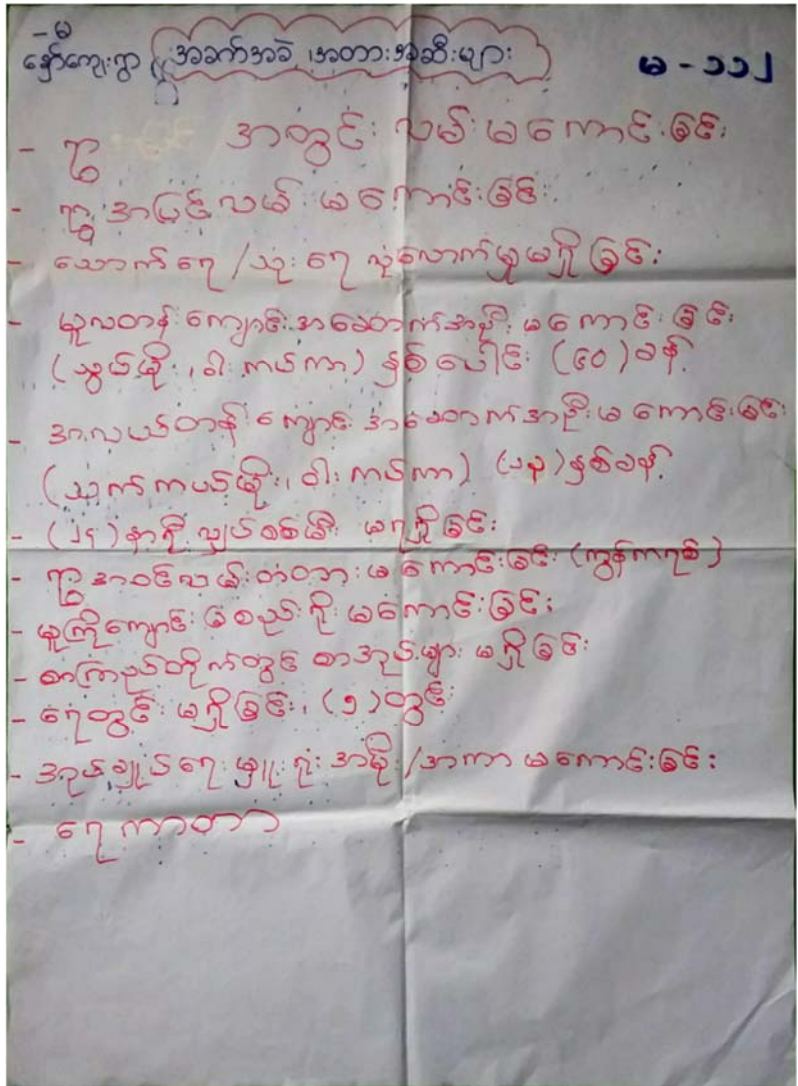 အခက်အခဲ ၊အတားအဆီးများ
မ - ၁၁၂
- ရွာ အတွင်း လမ်း မကောင်းခြင်း
- ရွာ အပြင် လမ်း မကောင်းခြင်း
- သောက်ရေ / သုံးရေ လုံလောက်မှု မရှိခြင်း
- မူလတန်း ကျောင်း အဆောက်အဦး မကောင်းခြင်း
(သွပ်မိုး ၊ ဝါးကပ်ကာ) နှစ်ပေါင်း (၄၀) ခန့်
- အလယ်တန်း ကျောင်း အဆောက်အဦး မကောင်းခြင်း
(သက်ကယ်မိုး ၊ ဝါးကပ်ကာ) နှစ်ခန့်
- (၂၄) နာရီ လျှပ်စစ်မီး မရရှိခြင်း
- ရွာ အဝင်လမ်း တံတား မကောင်းခြင်း (ကွန်ကရစ်)
- မူကြိုကျောင်း ခြံစည်းရိုး မကောင်းခြင်း
- စာကြည့်တိုက်တွင် စာအုပ်များ မရှိခြင်း
- ရေတွင်း မရှိခြင်း ၊ (၅) တွင်း
- အုပ်ချုပ်ရေးမှူးရုံး အမိုး / အကာ မကောင်းခြင်း
- ရေကာတာ